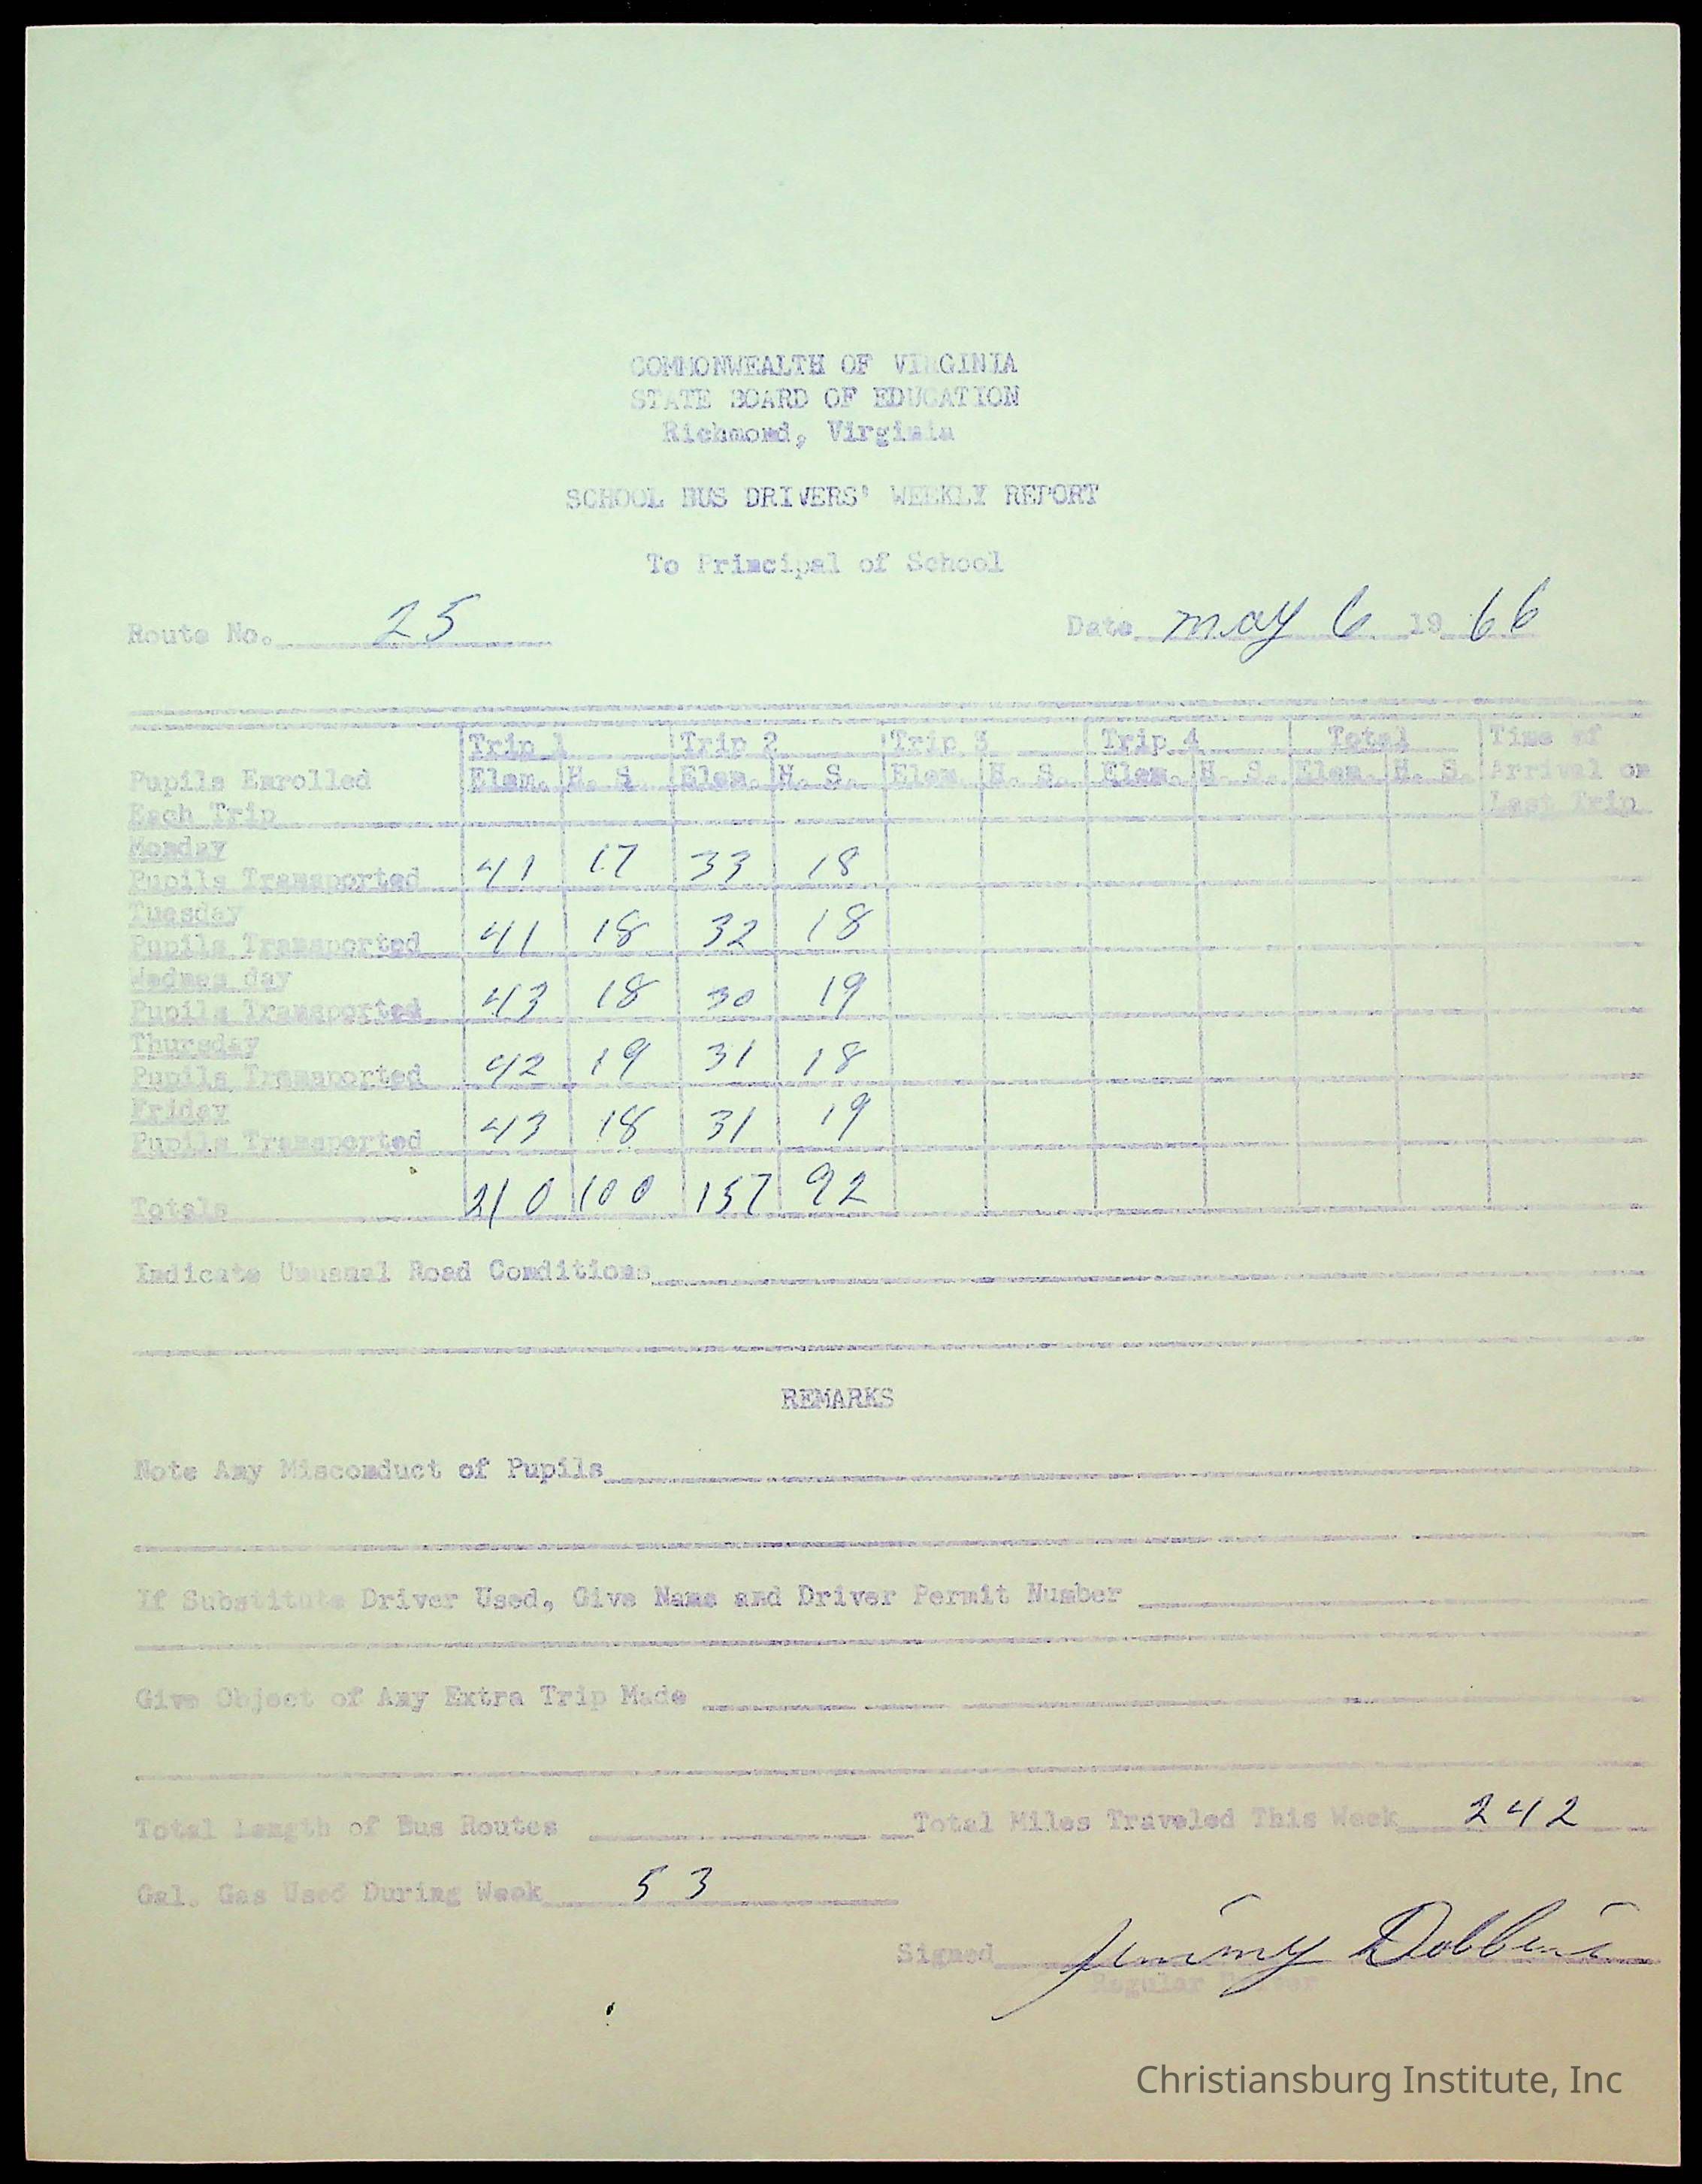 COMMONWEALTH OF VIRGINIA
STATE BOARD OF EDUCATION
Richmond, Virginia
SCHOOL BUS DRIVERS' WEEKLY REPORT
To Principal of School
Route No. 25 Date may 6 19 66
Trip 1 Trip 2 Trip 3 Trip 4 Total Time of
Pupils Enrolled Elem. H. S. Elem. H. S. Elem. H. S. Elem. H. S. Elem. H. S. Arrival on
Each Trip Last Trip
Monday
Pupils Transported 41 17 33 18
Tuesday
Pupils Transported 41 18 32 18
Wednes day
Pupils Transported 43 18 30 19
Thursday
Pupils Transported 42 19 31 18
Friday
Pupils Transported 43 18 31 19
Totals 210 100 157 92
Indicate Unusual Road Conditions
REMARKS
Note Any Misconduct of Pupils
If Substitute Driver Used, Give Name and Driver Permit Number
Give Object of Any Extra Trip Made
Total Length of Bus Routes Total Miles Traveled This Week 242
Gal. Gas Used During Week 53
Signed Jimmy Dobbins
Regular Driver
Christiansburg Institute, Inc